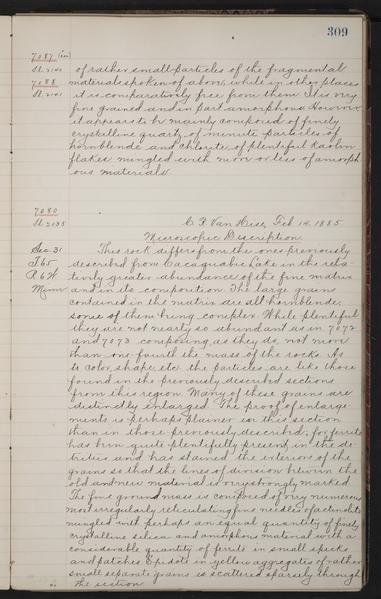 309
7087 (in)
Sl. 2140 of rather small particles of the fragmental
7088 materials spoken of above, while in other places
Sl. 2141 it is comparatively free from them. It is very
fine grained and in part amorphous. However
it appears to be mainly composed of finely
crystalline quartz, of minute particles of
hornblende and chlorite, of plentiful kaolin
flakes mingled with more or less of amorph
ous materials.
7080
Sl. 2135 C. R. Van Hise, Feb 14, 1885.
Microscopic Description.
Sec. 31 This rock differs from the ones previously
T 65 described from Gacaquabic Lake in the rela-
R. 6 W tively greater abundance of the fine matrix
Minn and in its composition. The large grains
contained in the matrix are all hornblende,
some of them being complex. While plentiful
they are not nearly so abundant as in 7072
and 7073 composing, as they do, not more
than one fourth the mass of the rock. As
to color, shape, etc. the particles are like those
found in the previously described sections
from this region. Many of these grains are
distinctly enlarged. The proof of enlarge-
ments is perhaps plainer in this section
than in those previously described, for ferrite
has been quite plentifully present in the de-
tritus and has stained the exteriors of the
grains so that the lines of division between the
old and new material is very strongly marked.
The fine ground mass is composed of very numerous
most irregularly reticulating fine needles of actinolite
mingled with perhaps an equal quantity of finely
crystalline silica and amorphous material with a
considerable quantity of ferrite in small specks
and patches. Epidote in yellow aggregates of rather
small separate grains is scattered sparsely through
the section.